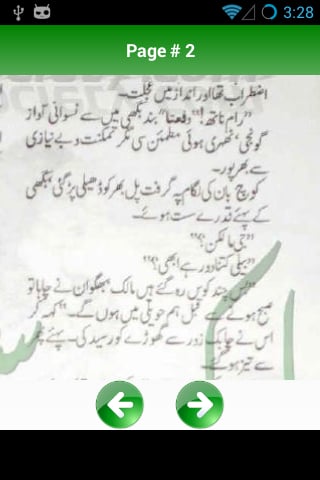 3:28
Page # 2
اضطراب تھا اور انداز میں عجلت۔
”رام ناتھ!“ دفعتا” بند بگھی میں سے نسوانی آواز
گونجی، ٹھہری ہوئی مطمئن سی مگر تمکنت و بے نیازی
سے بھرپور۔
کوچ بان کی لگام پہ گرفت پل بھر کو ڈھیلی پڑ گئی، بگھی
کے پہیے قدرے ست ہوئے۔
”جی مالکن؟“
”بیلی کتنا دور ہے ابھی؟“
”بس چند کوس رہ گئے ہیں مالک، بھگوان نے چاہا تو
صبح ہونے سے قبل ہم حویلی میں ہوں گے۔“ کہہ کر
اس نے چابک زور سے گھوڑے کو رسید کی۔ پہیے پھر
سے تیز ہو گئے۔